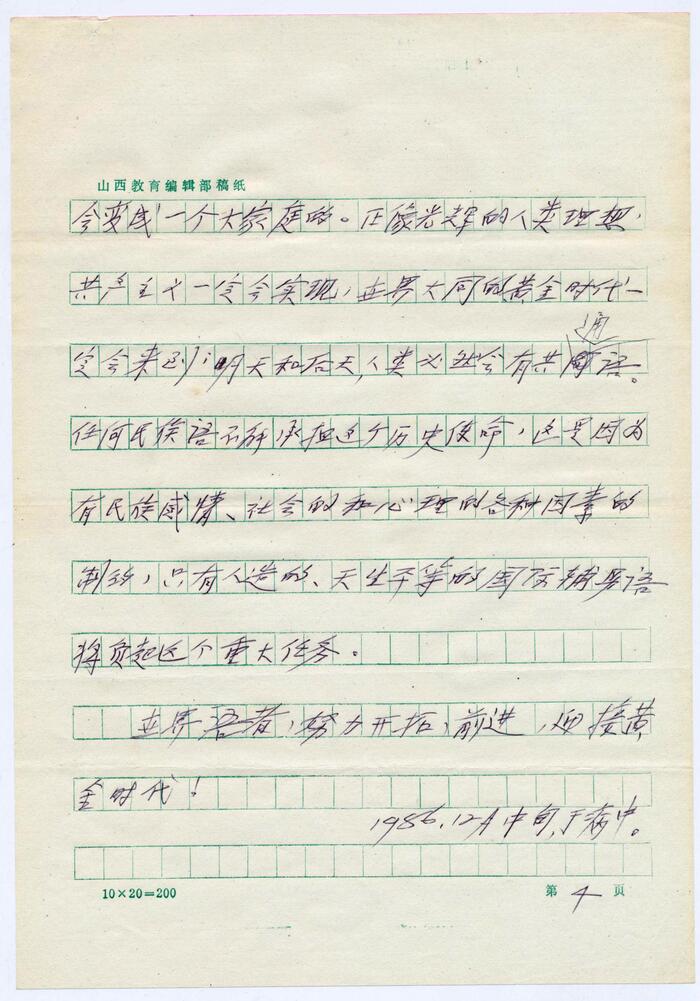 山西教育编辑部稿纸
会变成一个大家庭的。正像光辉的人类理想,
共产主义一定会实现,世界大同的黄金时代一
通
定会来到;明天和后天,人类必然会有共同语。
任何民族语不能承担这个历史使命,这是因为
有民族感情、社会的和心理的各种因素的
制约,只有人造的、天生平等的国际辅助语
将负起这个重大任务。
世界语者,努力开拓,前进,迎接黄
金时代!
1986.12月中旬,于病中。
10×20=200
第 4 页